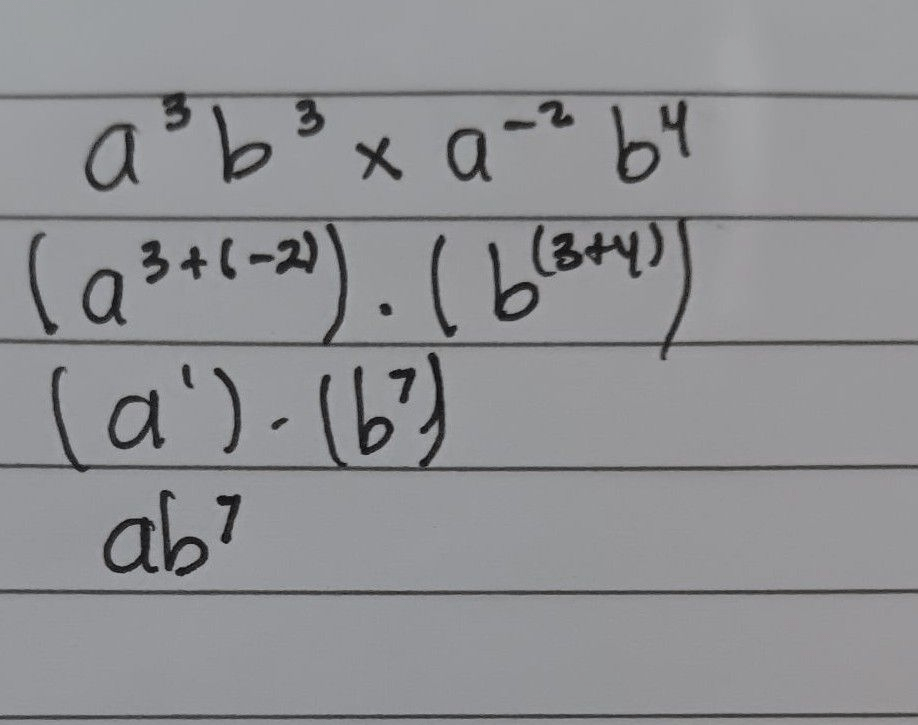 a³b³ × a⁻² b⁴
(a³⁺⁽⁻²⁾) · (b⁽³⁺⁴⁾)
(a¹) · (b⁷)
ab⁷